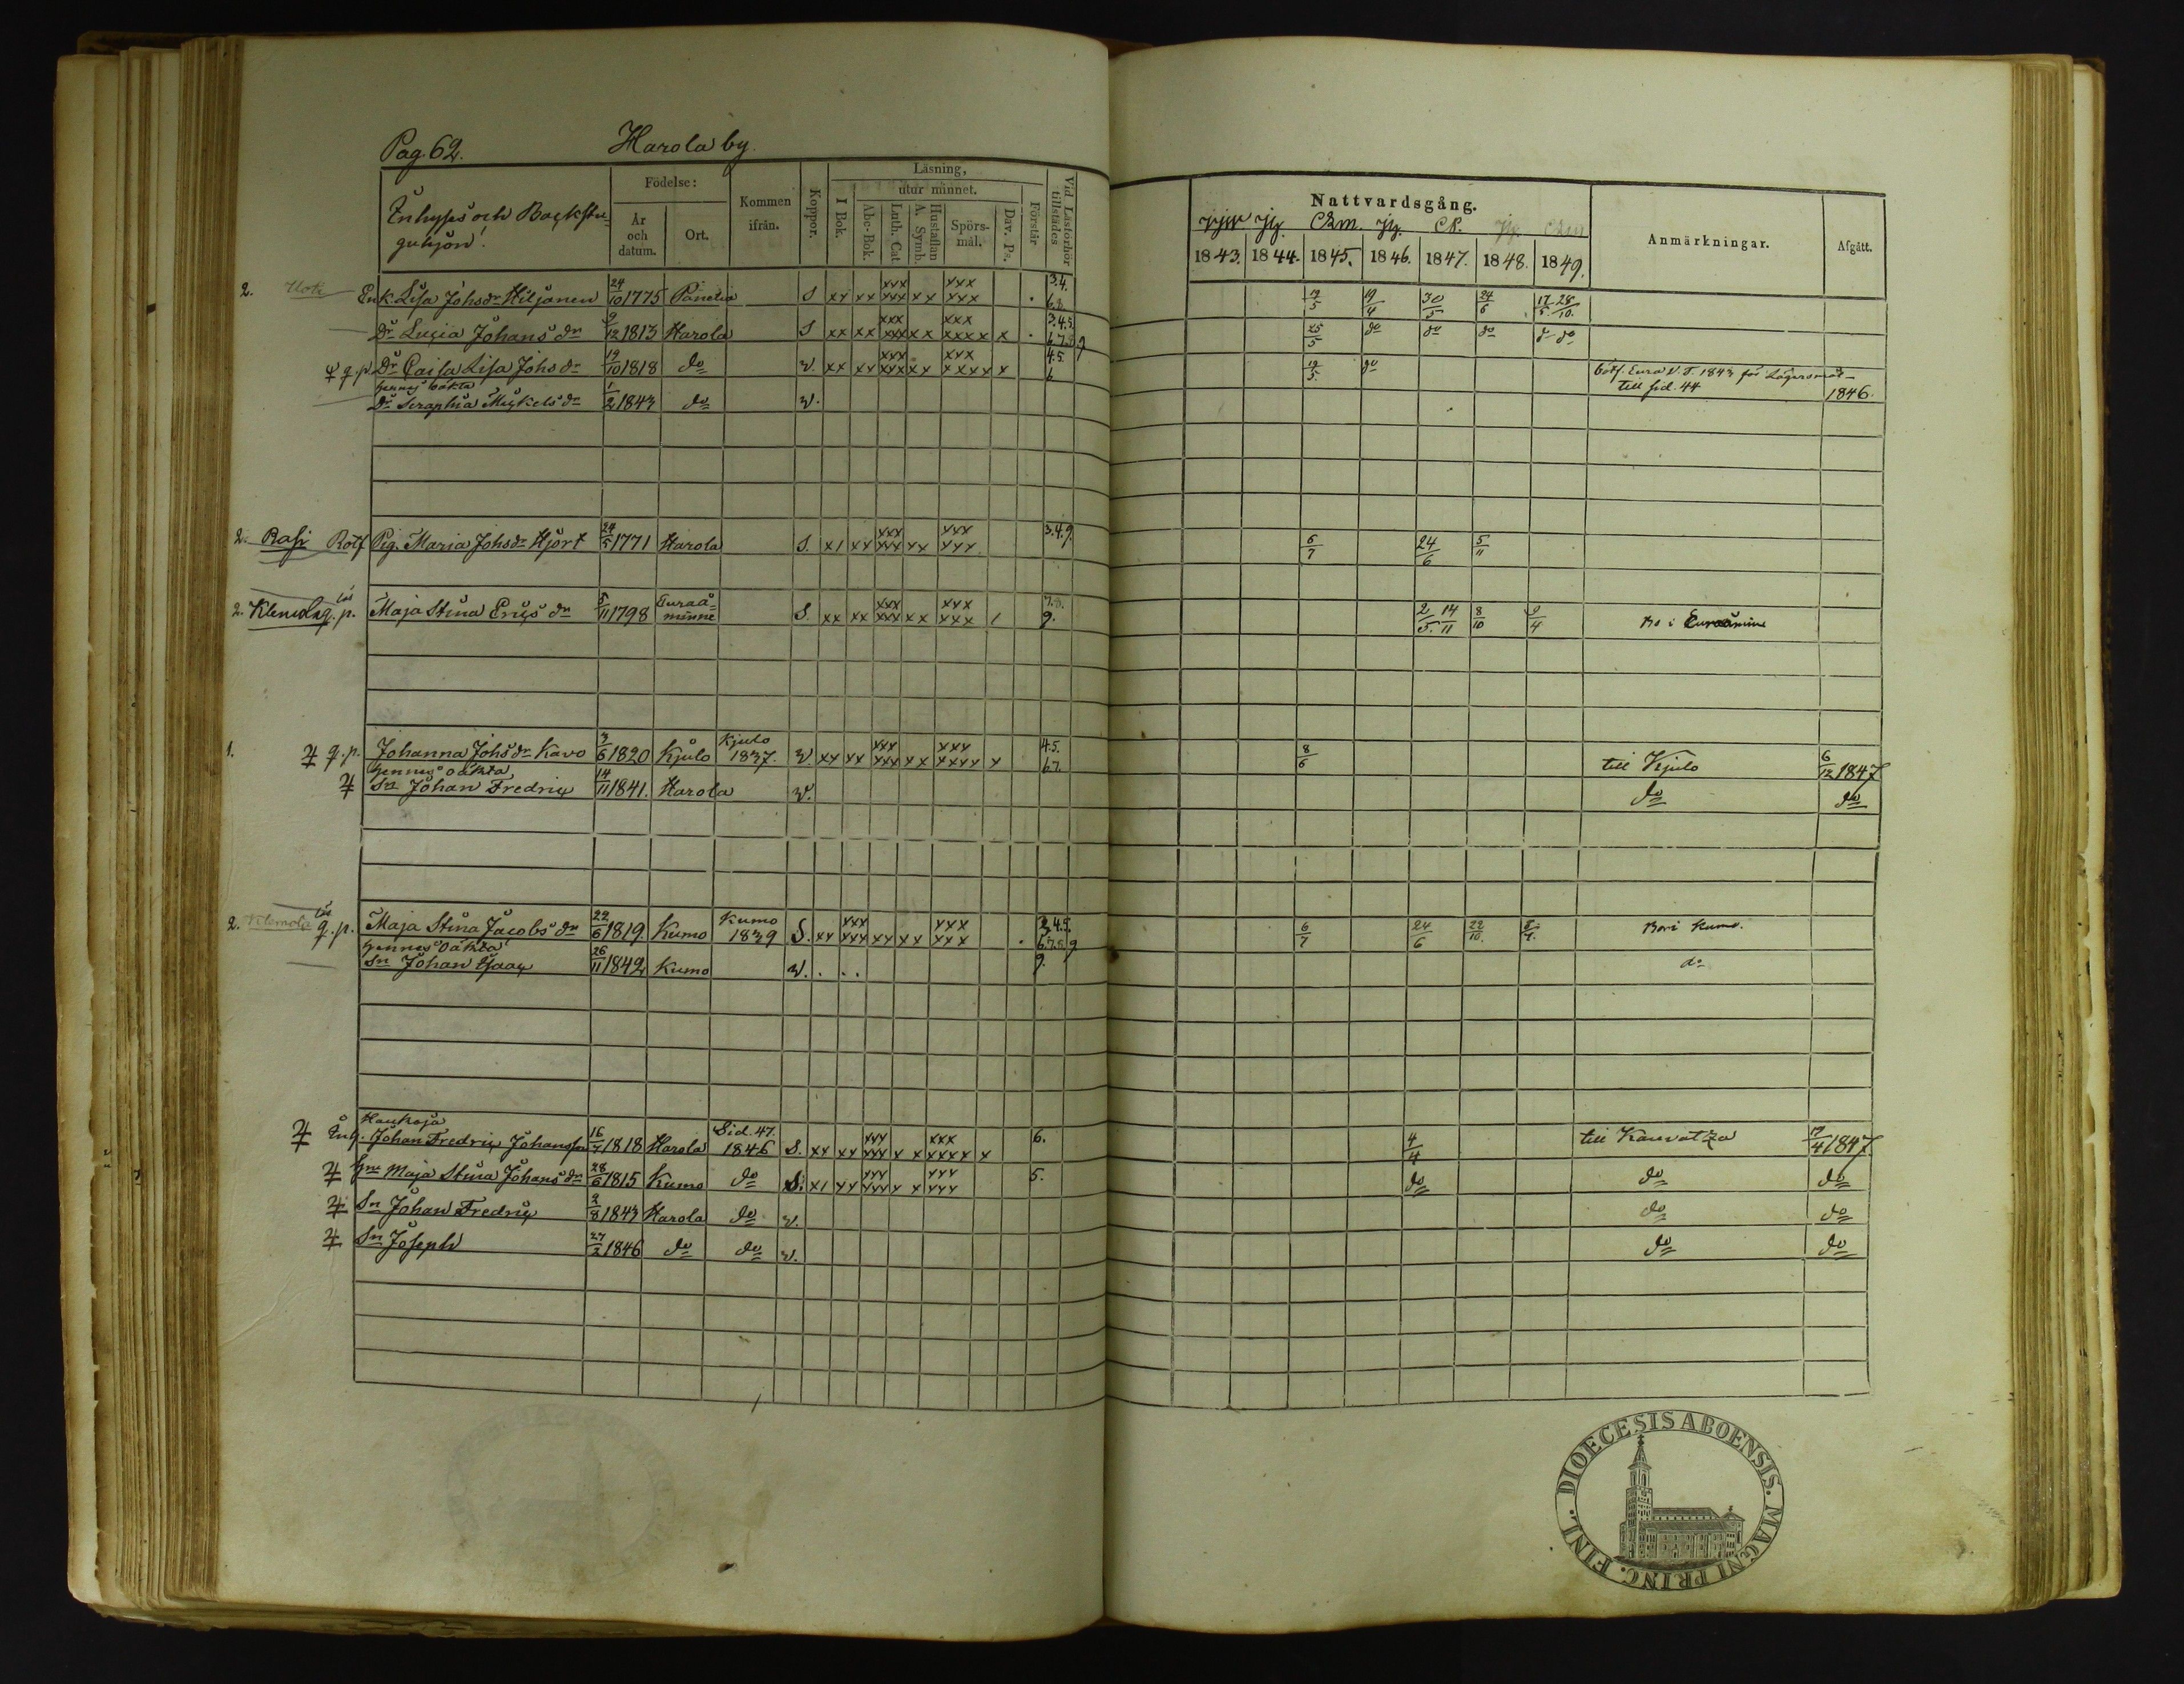 Pag. 62. Harola by.
Inhyses och Backstu-
guhjon.
Födelse: År och datum. Ort. Kommen ifrån. Koppor. Läsning, I Bok. utur minnet. Abc-Bok. Luth. Cat. Hustaflan A. Symb. Spörs-mål. Dav. Ps. Förstår Vid Läsförhör tillstädes
Nattvardsgång. Anmärkningar. Afgått.
1843. 1844. 1845. 1846. 1847. 1848. 1849.
2. Enk. Lisa Johsdr Hiljanen 24/10 1775 Panelia S xx xx xxx xxx xx xxx xxx 3.4. 6.8. 19/5 19/4 30/5 24/6 17/5 28/10
Dr Lucia Johans dr 9/12 1813 Harola S xx xx xxx xxx xx xxx xxxx x 3.4.5. 6.7.8.9 25/5 do do do do do
q.p. Dr Caisa Lisa Johs dr 19/10 1818 do v. xx xx xxx xxx xx xxx xxxx x 4.5. 6 19/5. do
till sid. 44 1846.
hennes oäkta
Dr Seraphia Mickels dr 1/2 1843 do v.
2. Rasi Rotf. Pig. Maria Johsdr Hjort 24/5 1771 Harola S. x1 xx xxx xxx xx xxx xxx 3.4.9 6/7 24/6 5/11
lös
2. Klemola q.p. Maja Stina Erics dr 5/11 1798 Euraå-minne S. xx xx xxx xxx xx xxx xxx 1 7.8. 9. 2/5. 14/11 8/10 9/4 Bo i Euraåminne
1. q.p. Johanna Johsdr Kavo 3/6 1820 Kjulo Kjulo 1837. v. xx xx xxx xxx xx xxx xxxx x 4.5. 6.7. 8/6 till Kjulo 6/12 1847
hennes oäkta
Sn Johan Fredric 14/11 1841. Harola v. do do
lös
2. Klemola q.p. Maja Stina Jacobs dr 22/6 1819 Kumo Kumo 1839 S. xx xxx xxx xx xx xxx xxx 3.4.5. 6.7.8.9 6/7 24/6 22/10. Bor i Kumo.
hennes oäkta
Sn Johan Isaac 26/11 1842 Kumo v. . . . 9. do
Haukoja
Inh. Johan Fredric Johansson 16/7 1818 Harola Sid. 47. 1846 S. xx xx xxx xxx x x xxx xxxxx x 6. 4/4 till Kauvatza 17/4 1847.
Hu Maja Stina Johans dr 28/6 1815 Kumo do S. x1 xx xxx xxx x x xxx xxx 5. do do do
Sn Johan Fredric 2/8 1843 Harola do v. do do
Sn Joseph 27/2 1846 do do v. do do
FINL. DIOECESIS ABOENSIS. MAGNI PRINC.